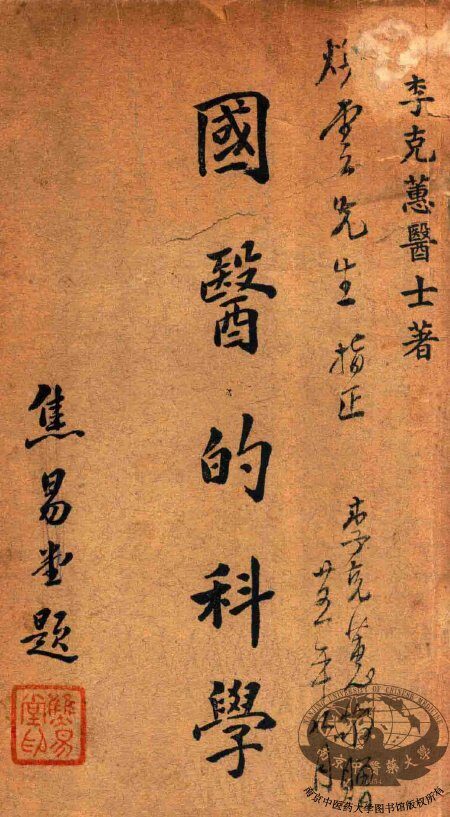 李克蕙醫士著
先生指正
李克蕙敬贈
廿五年 月
國醫的科學
焦易堂題
焦易堂印
NANJING UNIVERSITY OF CHINESE MEDICINE
南京中醫藥大學
南京中医药大学图书馆版权所有